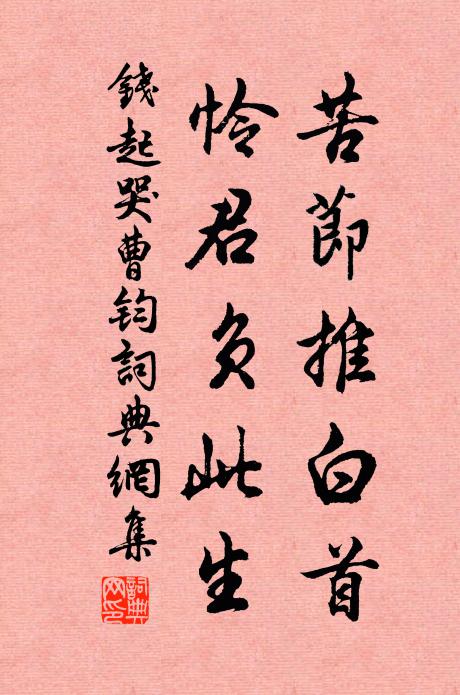 苦莭推白首
怜君負此生
錢起哭曹鈞詞典網集
詞典
网印